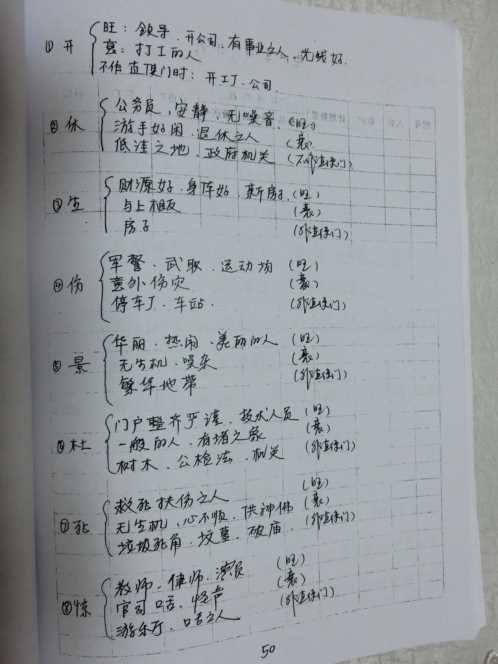 ① 开 旺：领导、开公司、有事业之人、光线好.
衰：打工的人
不作直使门时：开工厂、公司.
② 休 公务员、安静、无噪音. (旺)
游手好闲、退休之人 (衰)
低洼之地、政府机关 (不作直使门)
③ 生 财源好、身体好、新房子. (旺)
(衰)
房子 (非直使门)
④ 伤 军警、武职、运动场 (旺)
意外伤灾 (衰)
停车厂、车站. (非直使门)
⑤ 景 华丽、热闹、美丽的人 (旺)
无生机、噪杂 (衰)
繁华地带 (非直使门)
⑥ 杜 门户整齐严谨、技术人员 (旺)
一般的人、有堵之象 (衰)
树木、公检法、机关 (非直使门)
⑦ 死 救死扶伤之人 (旺)
无生机、心不顺、供神佛 (衰)
垃圾死角、坟墓、破庙. (非直使门)
⑧ 惊 教师、律师、演员 (旺)
官司口舌、怪声 (衰)
游乐厅、口舌之人 (非直使门)
50